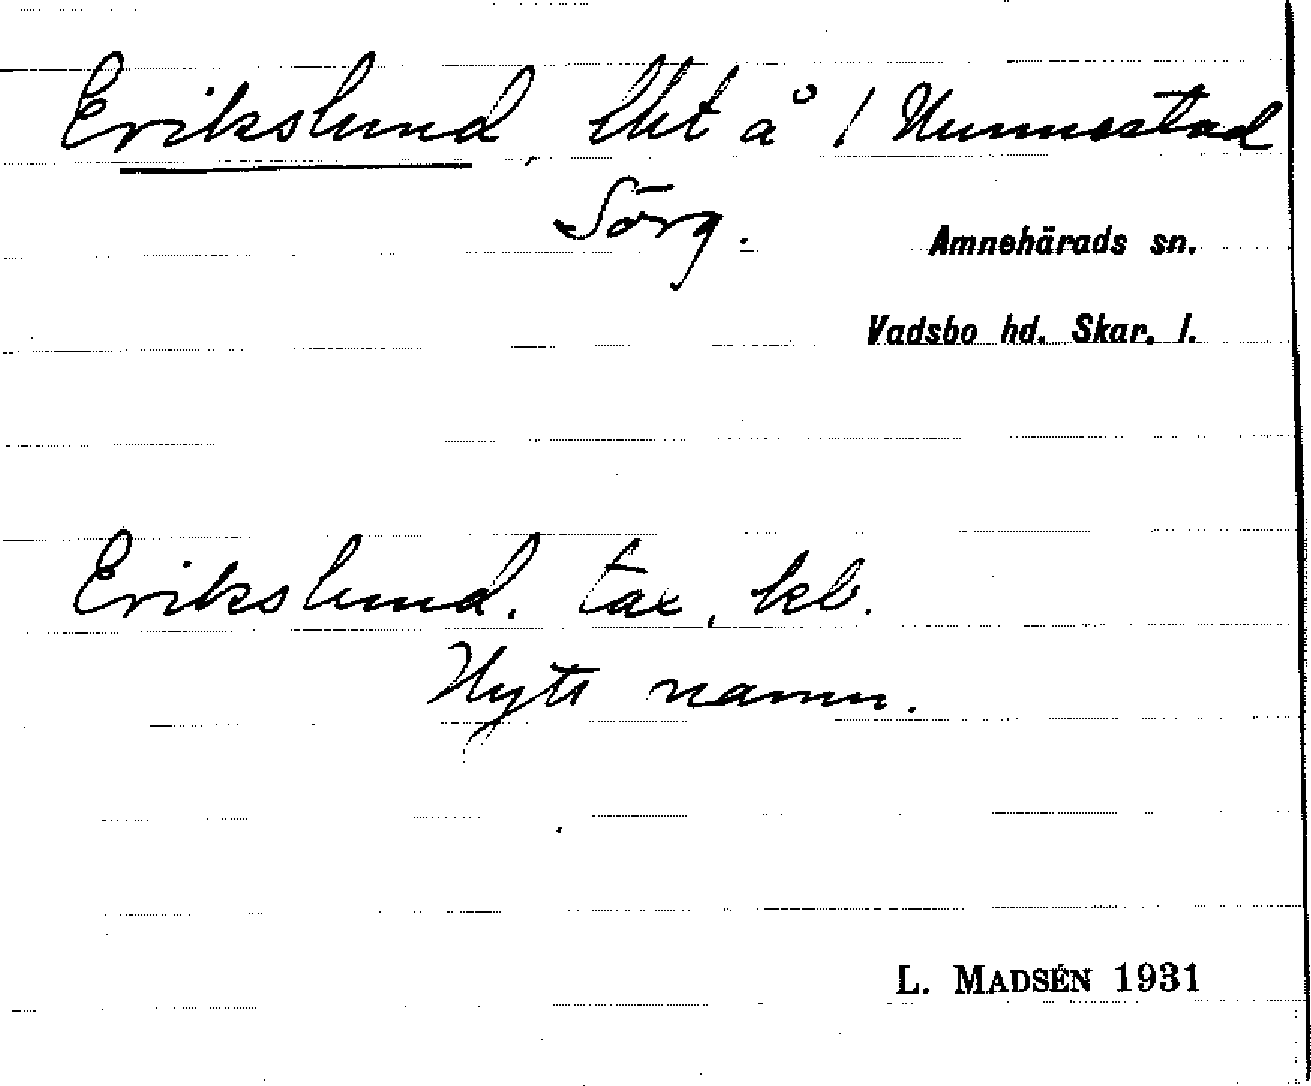 Erikslund, lht å 1 Nunnestad
Sörg.
Amnehärads sn.
Vadsbo hd. Skar. l.
Erikslund. tax, kb.
Nytt namn.
L. MADSÉN 1931